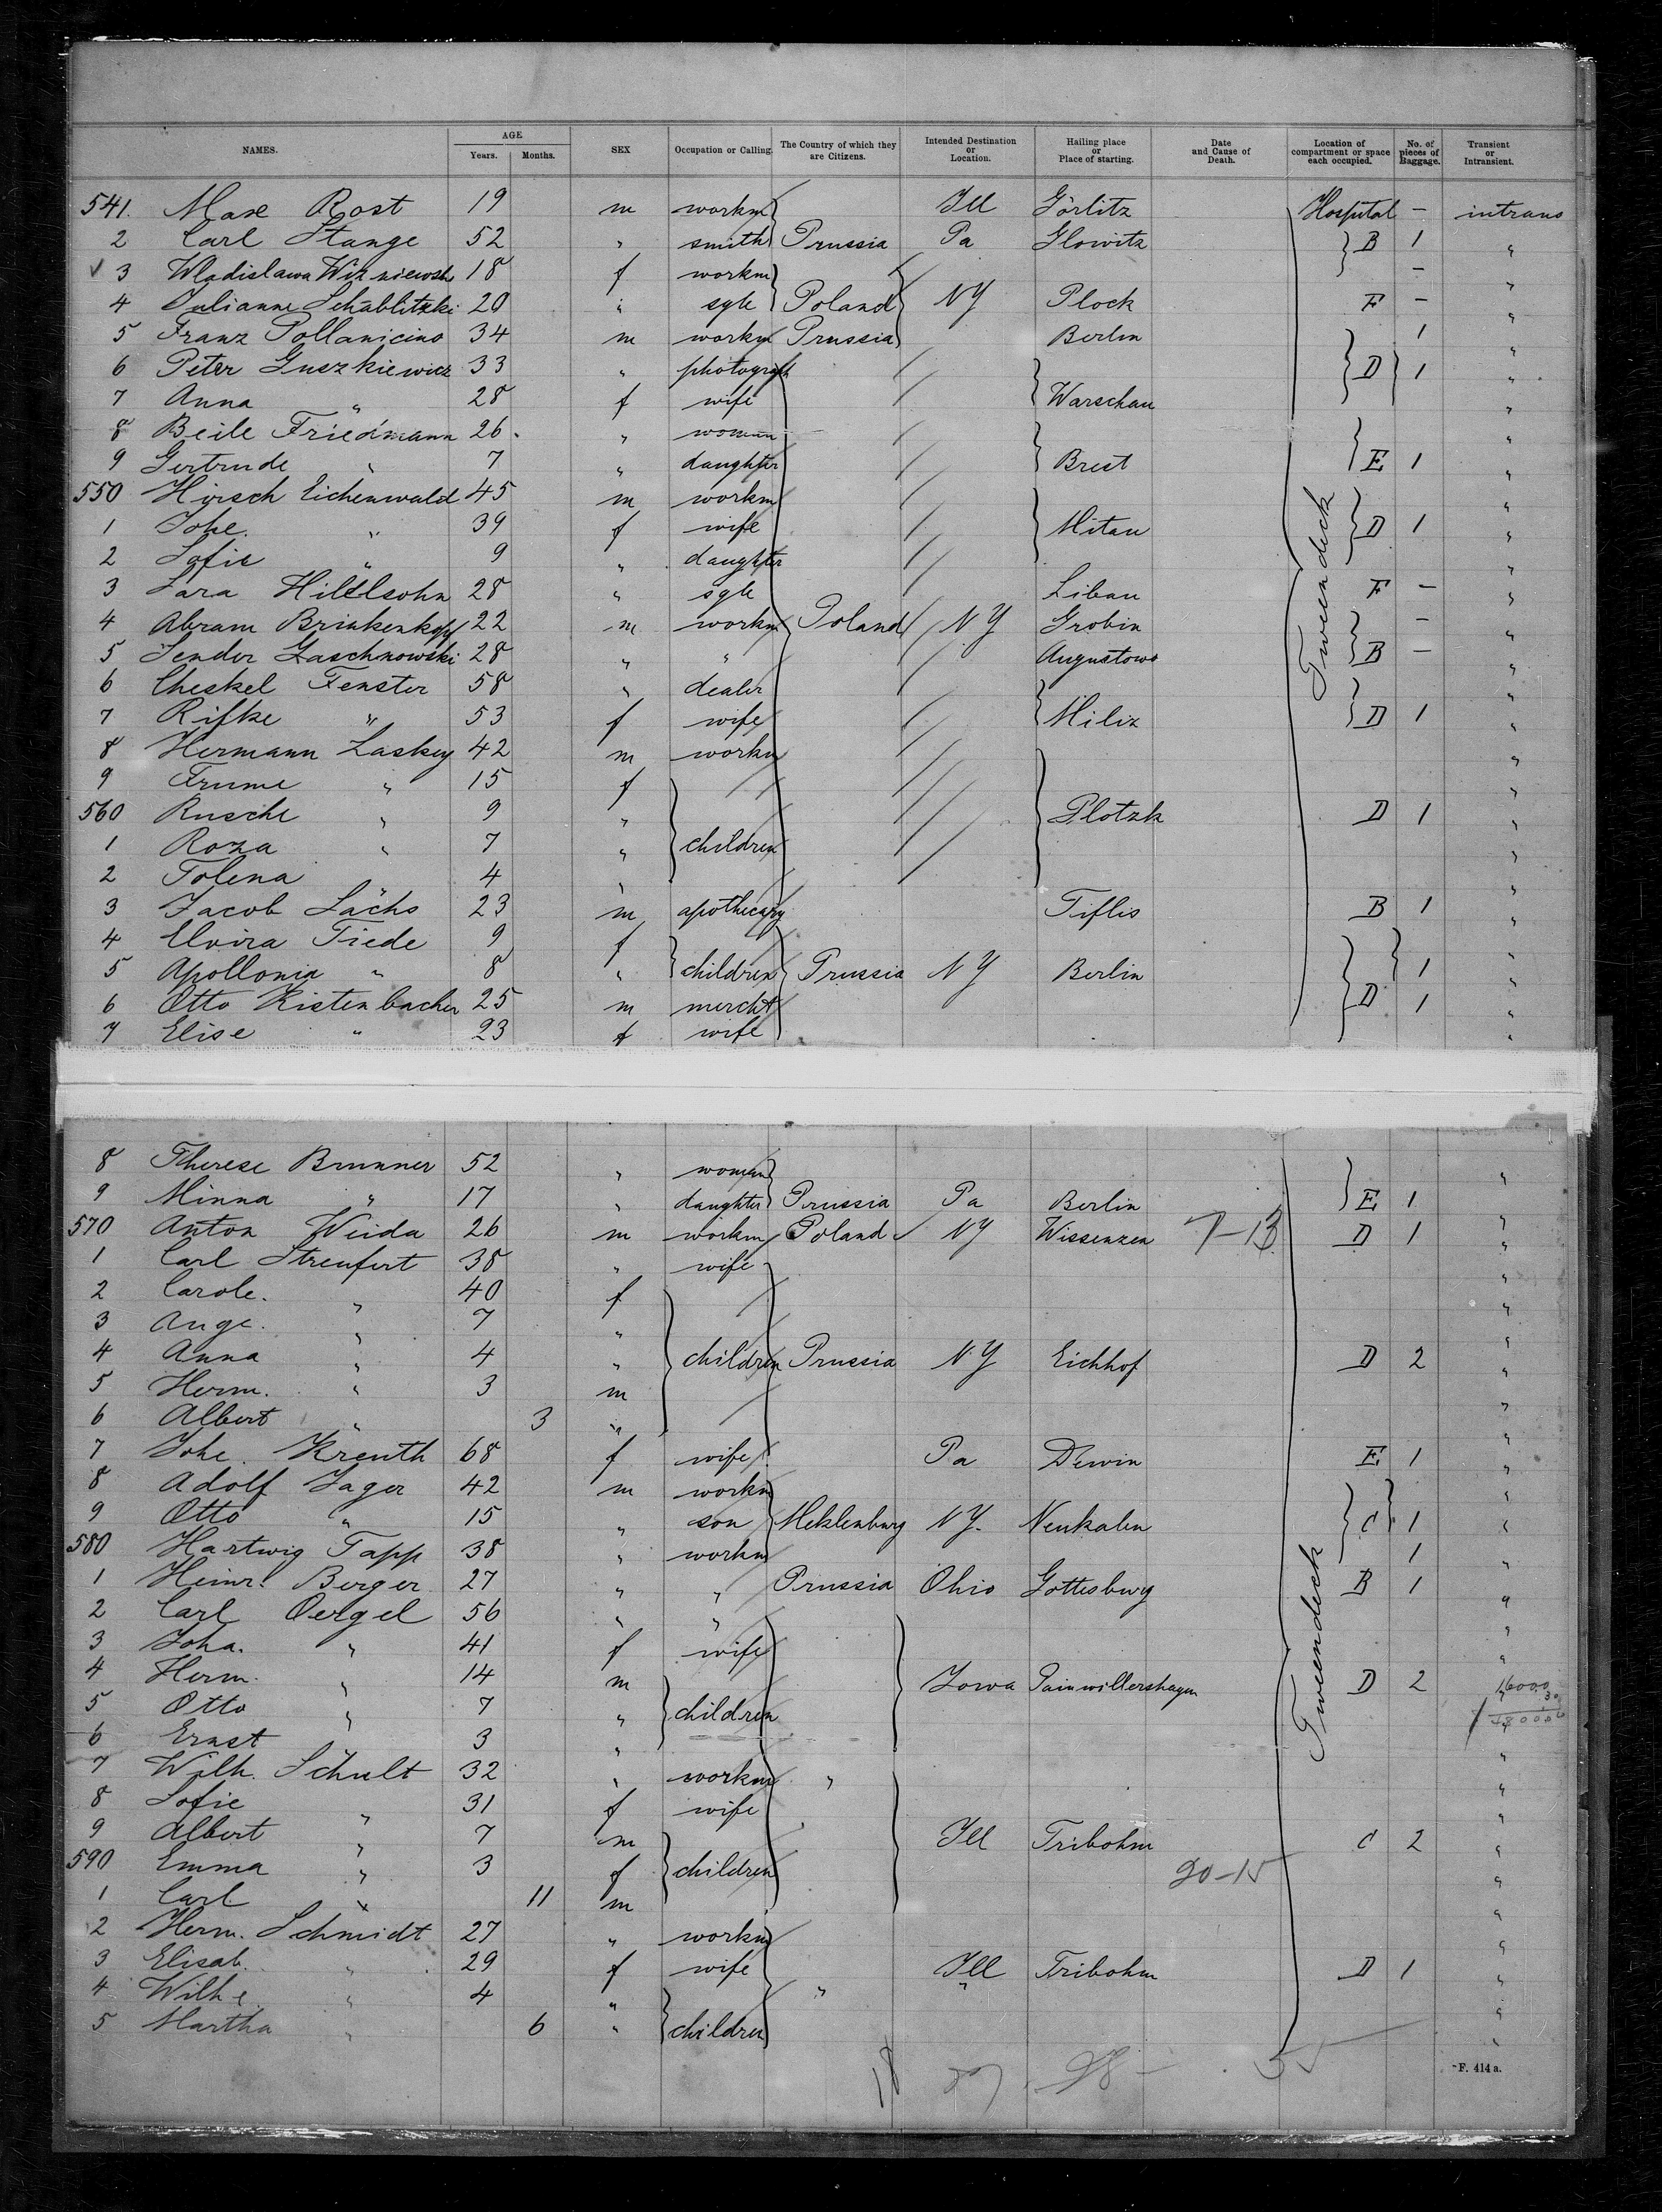 NAMES. AGE Years. Months. SEX Occupation or Calling. The Country of which they are Citizens. Intended Destination or Location. Hailing place or Place of starting. Date and Cause of Death. Location of compartment or space each occupied. No. of pieces of Baggage. Transient or Intransient.
541. Max Rost 19 m workm Ill Görlitz Hospital — intrans
2 Carl Stange 52 " smith Prussia Pa Glowitz B 1 "
3 Wladislawa Wisniewsk 18 f workm — "
4 Julianne Schablitzki 20 " sgle Poland NY Plock F — "
5 Franz Pollanicino 34 m workm Prussia Berlin 1 "
6 Peter Guszkiewicz 33 " photograph D 1 "
7 Anna " 28 f wife Warschau "
8 Beile Friedmann 26 " woman "
9 Gertrude " 7 " daughter Brest E 1 "
550 Hirsch Eichenwald 45 m workm "
1 Johe. " 39 f wife Mitau D 1 "
2 Sofie " 9 " daughter "
3 Sara Hillelsohn 28 " sgle Libau F — "
4 Abram Brinkenkopf 22 m workm Poland NY Grobin — "
5 Sender Laschnowski 28 " " Augustowo B — "
6 Cheskel Fenster 58 " dealer "
7 Rifke " 53 f wife Miliz D 1 "
8 Hermann Laskey 42 m workm "
9 Frume " 15 f "
560 Rusche " 9 " Plotzk D 1 "
1 Roza " 7 " children "
2 Tolena " 4 " "
3 Jacob Sachs 23 m apothecary Tiflis B 1 "
4 Elvira Tiede 9 f "
5 Apollonia " 8 " children Prussia NY Berlin 1 "
6 Otto Kistenbacher 25 m mercht D 1 "
7 Elise " 23 f wife "
Tweendeck
8 Therese Brunner 52 " woman "
9 Minna " 17 " daughter Prussia Pa Berlin E 1 "
570 Anton Weida 26 m workm Poland NY Wissenzen 7-13 D 1 "
1 Carl Streufert 38 " wife "
2 Carole. " 40 f "
3 Auge. " 7 " "
4 Anna " 4 " children Prussia NY Eichhof D 2 "
5 Herm. " 3 m "
6 Albert " 3 " "
7 Johe. Kreuth 68 f wife Pa Dewin E 1 "
8 Adolf Jager 42 m workm "
9 Otto " 15 " son Meklenburg NY. Neukalen C 1 "
580 Hartwig Tapp 38 " workm 1 "
1 Heinr. Berger 27 " " Prussia Ohio Gottesburg B 1 "
2 Carl Oergel 56 " " "
3 Joha. " 41 f wife "
4 Herm. " 14 m Iowa D 2
5 Otto " 7 " children
6 Ernst " 3 " "
7 Wilh. Schult 32 " workm " "
8 Sofie " 31 f wife "
9 Albert " 7 m Ill Tribohm C 2 "
590 Emma " 3 f children 20-15 "
1 Carl " 11 m "
2 Herm. Schmidt 27 " workm "
3 Elisab. " 29 f wife Ill Tribohm D 1 "
4 Wilhe " 4 " " "
5 Martha " 6 " children "
Tweendeck
18
F. 414 a.